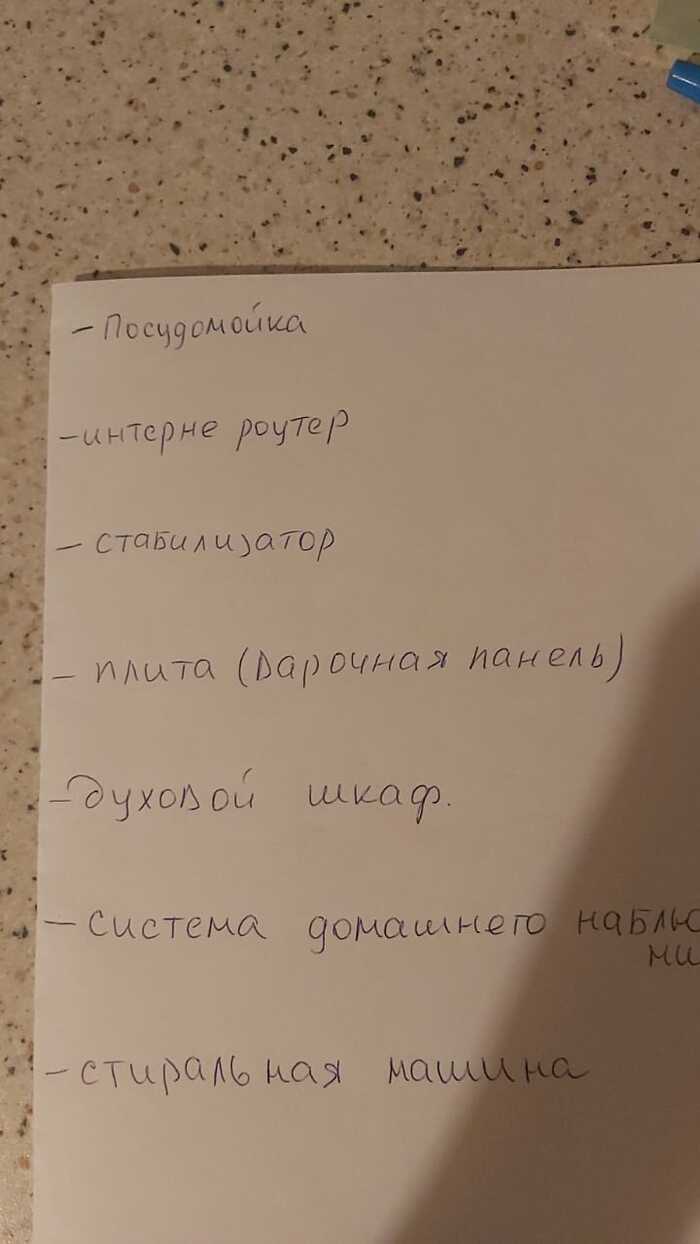 - Посудомойка
- интерне роутер
- стабилизатор
- плита (варочная панель)
- духовой шкаф.
- система домашнего наблю
ни
- стиральная машина